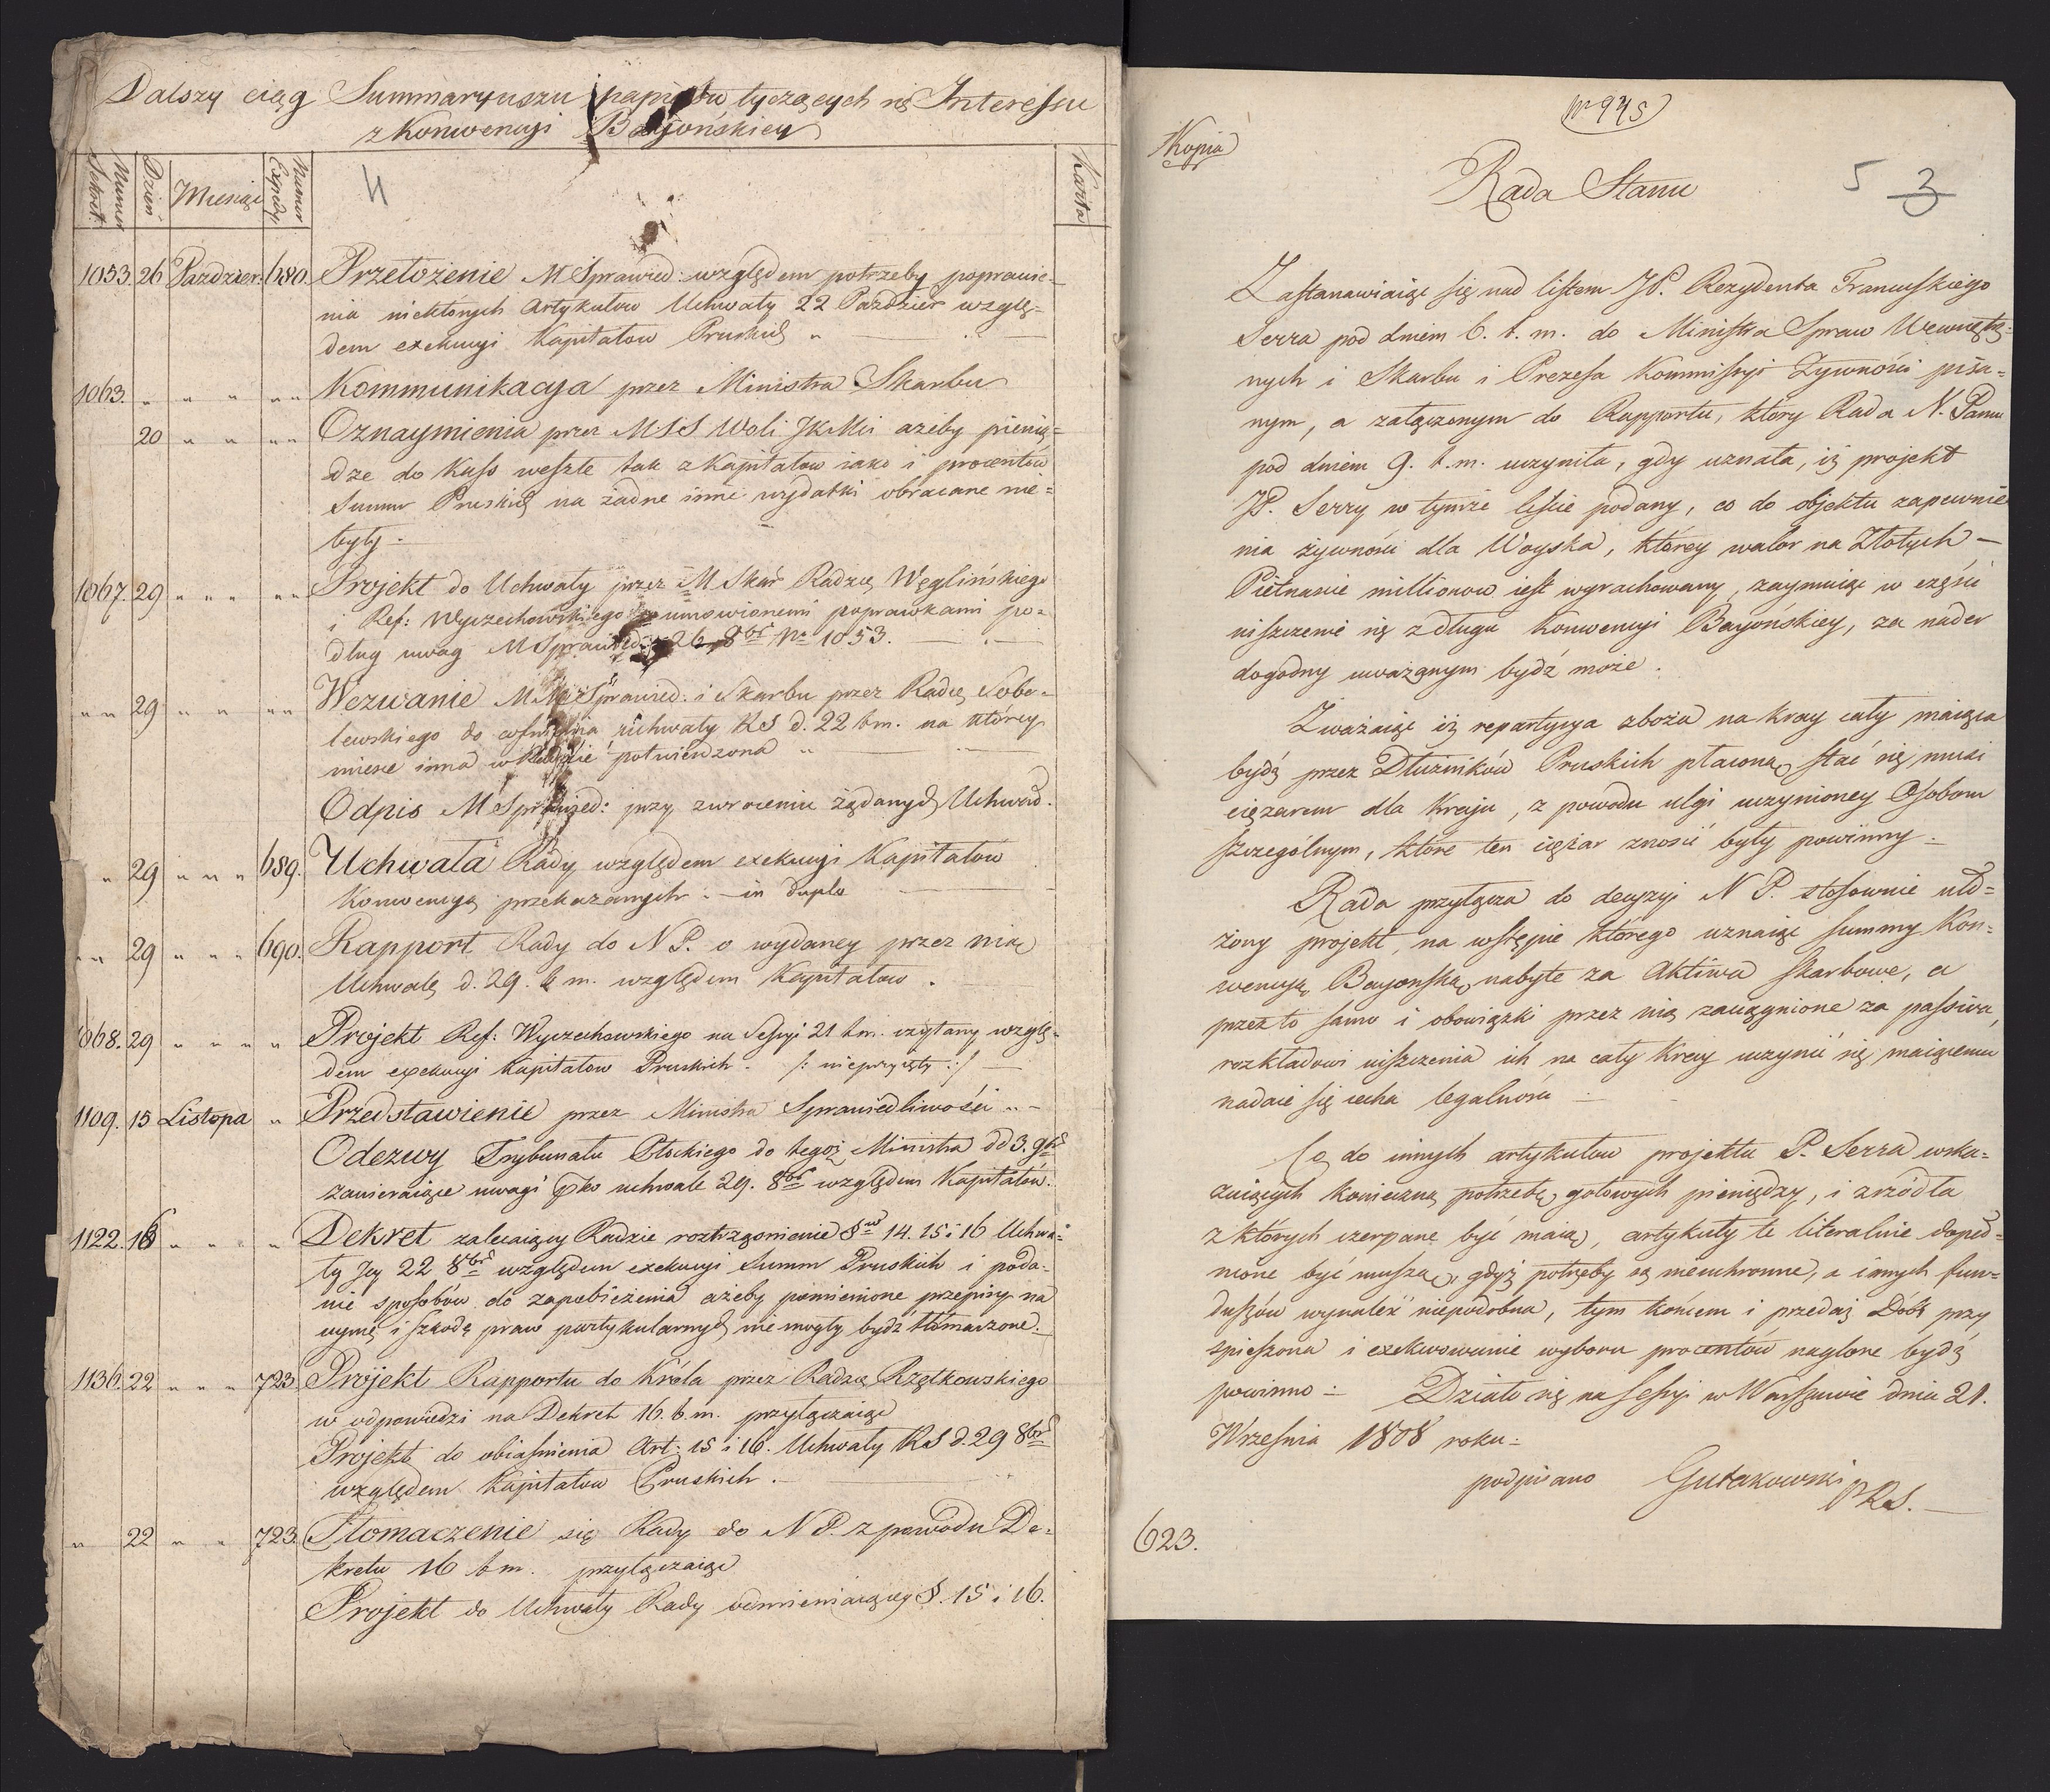 Dalszy ciąg Summaryuszu papierów tyczących się Interessu
z Konwencyi Bayońskiey
Numer Sekret.
Dzień
Miesiąc
Numer Expedy.
Karta
4
1053. 26 Pazdzier: 680. Przełożenie M Sprawied: względem potrzeby poprawie-
nia niektórych Artykułow Uchwały 22 Pazdzier wzglę-
dem exekucyi Kapitałow Pruskich "
1063. " " " " " Kommunikacya przez Ministra Skarbu
20 " " " " Oznaymienia przez MSS Woli JKMci ażeby pienią-
dze do Kass weszłe tak z Kapitałow iako i procentów
Summ Pruskich na żadne inne wydatki obracane nie-
były -
1067. 29 " " " " " Projekt do Uchwały przez M Skar Radzcę Węglińskiego
i Ref: Wyczechowskiego z umowionemi poprawkami po-
dług uwag M Sprawied: 26 8br No 1053.
" " 29 " " " " Wezwanie MM Sprawied: i Skarbu przez Radcę Sobo-
lewskiego do cofnienia uchwały RS d. 22 bm. na którey
miesce inna w Radzie potwierdzona "
Odpis M Sprawied: przy zwroceniu żądanych Uchwał.
" 29 " " " 689. Uchwała Rady względem exekucyi Kapitałow
Konwencyą przekazanych. - in duplo
" " 29 " " " 690. Rapport Rady do N P. o wydaney przez nią
Uchwale d. 29. b m. względem Kapitałow.
1068. 29 " " " " Projekt Ref: Wyczechowskiego na Sessyi 21 b.m. czytany wzglę-
dem exekucyi Kapitałow Pruskich. /: nieprzyięty :/
1109. 15 Listopa " Przedstawienie przez Ministra Sprawiedliwości " -
Odezwy Trybunału Płockiego do tegoż Ministra dd 3. 9br
zawieraiące uwagi pko uchwale 29. 8br względem Kapitałów.
1122. 16 " " " " Dekret zalecaiący Radzie roztrząsnienie §w 14. 15 i 16 Uchwa-
ły Jey 22 8br względem exekucyi Summ Pruskich i poda-
nie sposobów do zapobieżenia ażeby pomienione przepisy na
uymę i szkodę praw partykularnych nie mogły bydź tłómaczone.
1136. 22 " " " 723 Projekt Rapportu do Króla przez Radzcę Rzętkowskiego
w odpowiedzi na Dekret 16. b.m. przyłączaiąc
Projekt do obiasnienia Art: 15 i 16. Uchwały RS d. 29 8br
względem Kapitałow Pruskich.
" 22 " " 723. Tłomaczenie się Rady do N P. z powodu De-
kretu 16 b m. przyłączaiąc
Projekt do Uchwały Rady odmieniaiącey §. 15 i 16.
No 945
Kopia
Rada Stanu
5 3
Zastanawiaiąc się nad listem JP. Rezydenta Francuskiego
Serra pod dniem 6. b. m. do Ministra Spraw Wewnętrz-
nych i Skarbu i Prezesa Kommissyi Żywności pisa-
nym, a załączonym do Rapportu, który Rada N. Panu
pod dniem 9. b. m. uczyniła, gdy uznała, iż projekt
JP. Serry w tymże liście podany, co do objektu zapewnie
nia żywności dla Woyska, którey walor na Złotych -
Piętnascie millionow iest wyrachowany, zaymuiąc w części
uiszczenie się z długu Konwencyi Bayońskiey, za nader
dogodny uważanym bydź może.
Zważaiąc iż repartycya zboża na kray cały maiąca
bydź przez Dłużników Pruskich płaconą, stać się musi
ciężarem dla Kraju, z powodu ulgi uczynioney Osobom
szczególnym, które ten ciężar znosić były powinny -
Rada przyłącza do decyzyi N P. stosownie uło-
żony projekt, na wstępie którego uznaiąc summy Kon-
wencyą Bayonską nabyte za Aktiwa skarbowe, a
przez to samo i obowiązki przez nią zaciągnione za passiva,
rozkładowi uiszczenia ich na cały Kray uczynić się maiącemu
nadaie się cecha legalności
Co do innych artykułow projektu P. Serra wska-
zuiących konieczną potrzebę gotowych pieniędzy, i zrzódła
z których czerpane być maią, artykuły te literalnie dopeł-
nione być muszą, gdyż potrzeby są nieuchronne, a innych fun-
duszów wynaleść niepodobna, tym końcem i przedaż Dóbr przy
spieszona i exekwowanie wyboru procentów naglone bydź
powinno - Działo się na Sessyi w Warszawie dnia 21.
Września 1808 roku -
podpisano Gutakowski PRS.
623.